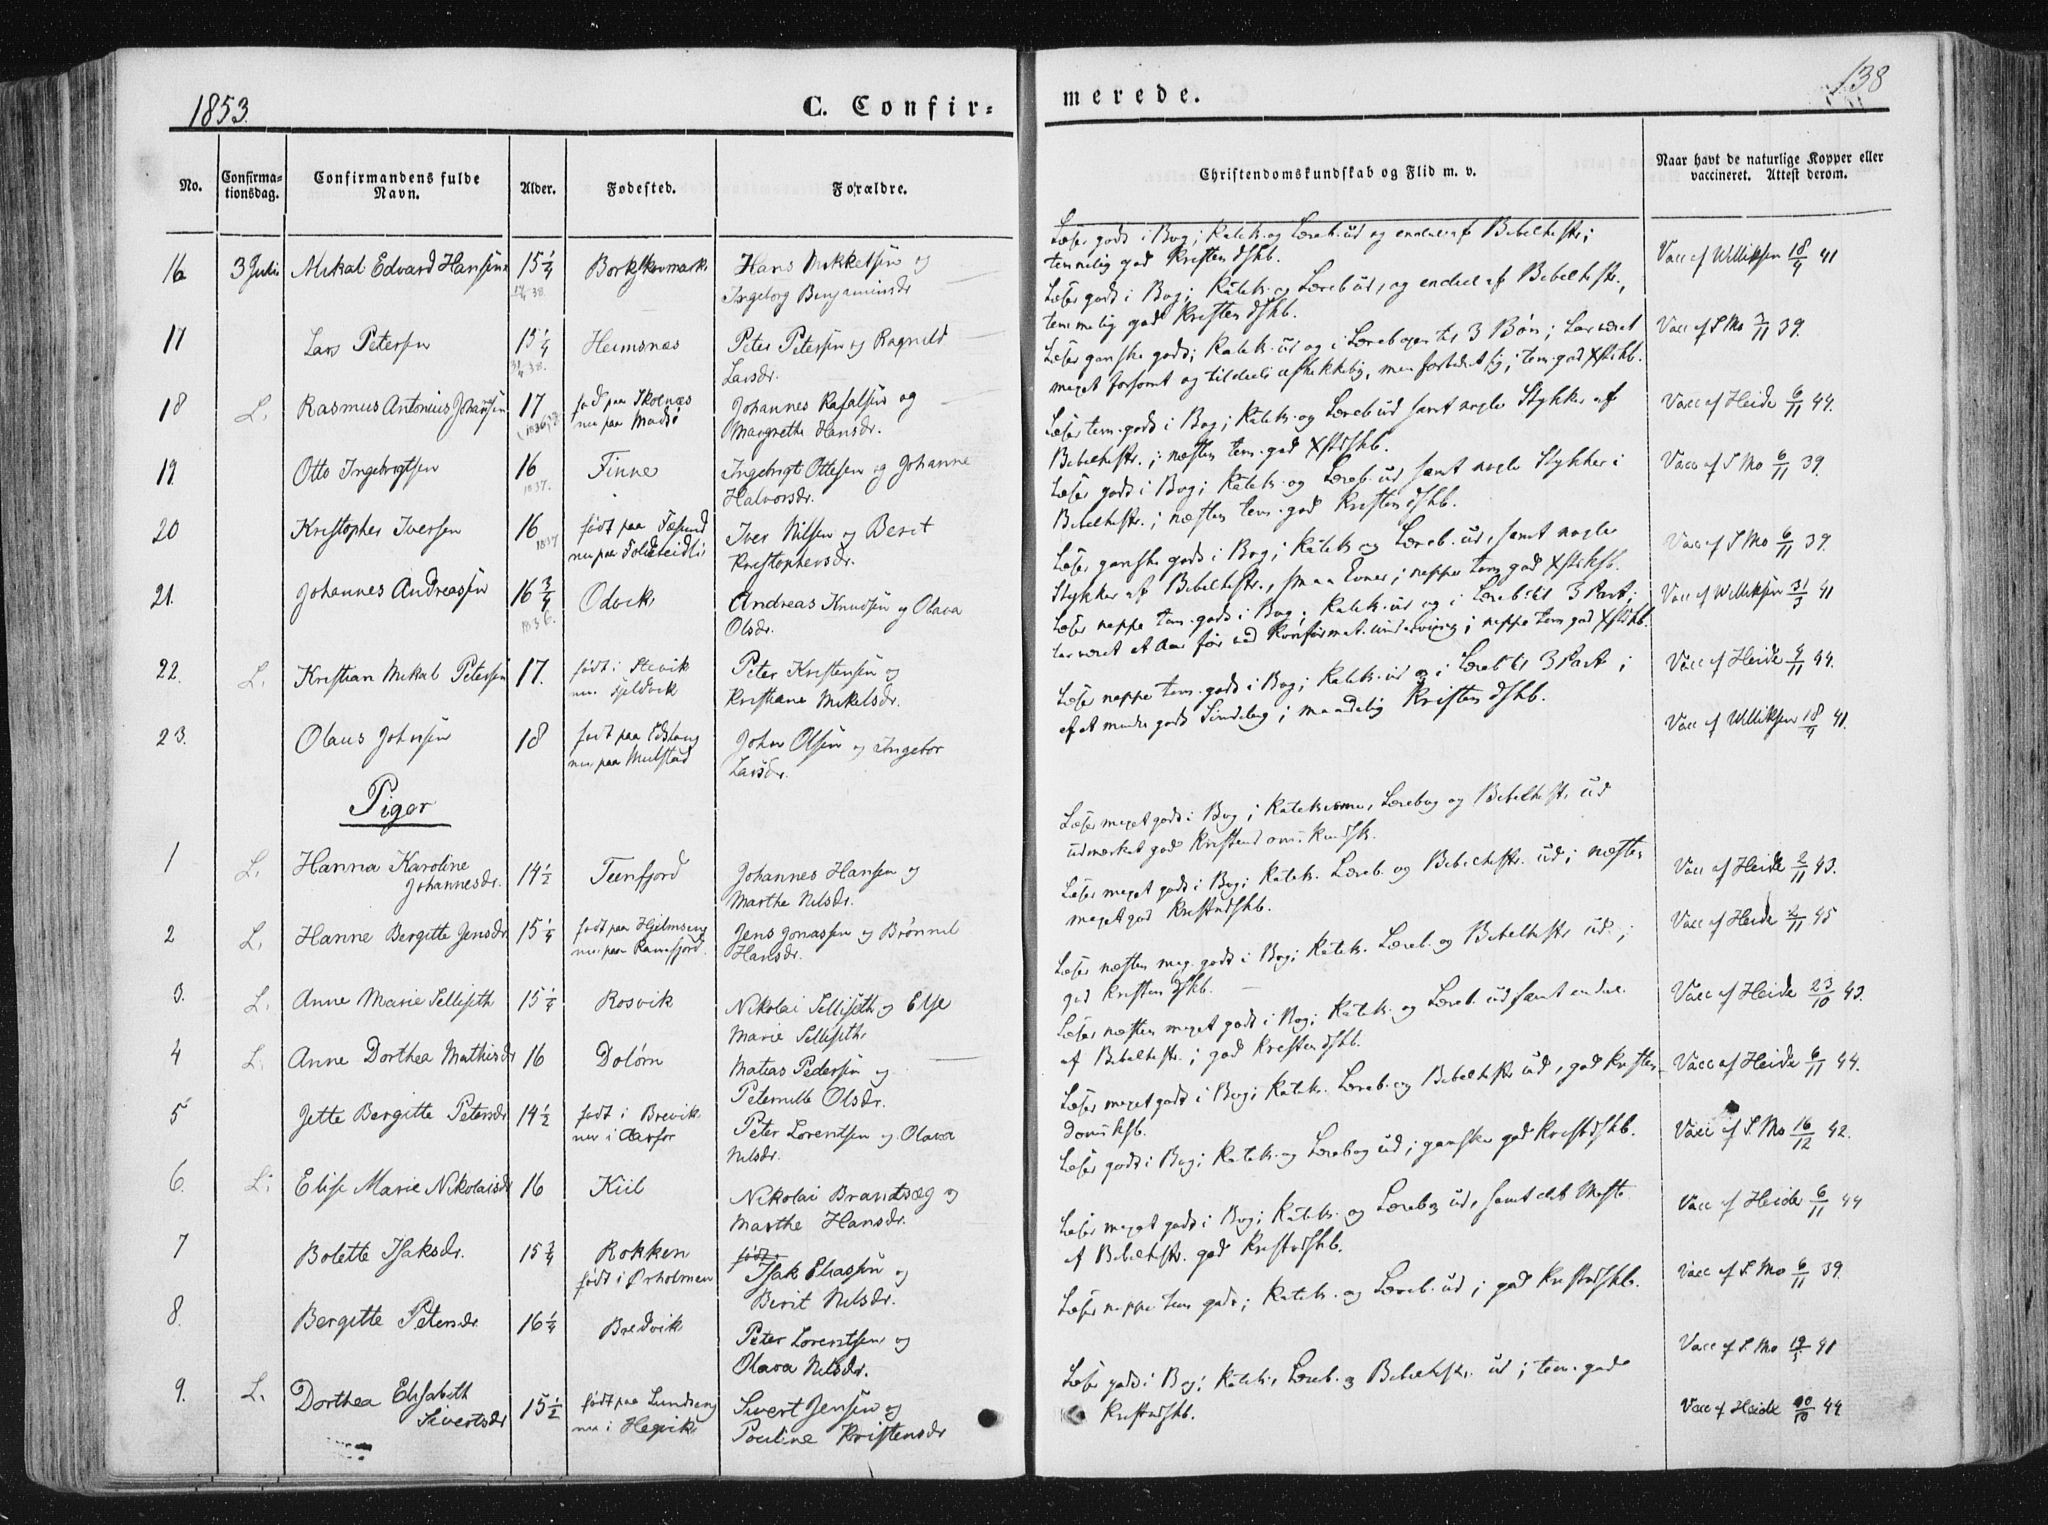 1853.
C. Confir-
merede.
138
No.
Confirma-
tionsdag.
Confirmandens fulde
Navn.
Alder.
Fødested.
Forældre.
Christendomskundskab og Flid m. v.
Naar havt de naturlige Kopper eller
vaccineret. Attest derom.
16 3 Juli Mikal Edvard Hansen 15 1/4 Hans Mikkelsen og
Ingeborg Benjaminsdr
Læser godt i Bog; Katek. og Læreb. ud og endeel af Bibelhistr.;
temmelig god Kristendskb.
Vacc af Williksen 18/4 41
17 Lars Petersen 15 1/4 Heimsnæs Peter Petersen og Ragnild
Larsdr.
Læser godt i Bog; Katek. og Læreb ud, og endeel af Bibelhistr.,
temmelig god Kristendskb.
Vacc af S Mo 3/11 39.
18 L. Rasmus Antonius Johansen 17 fød paa Skotnæs
nu paa Madsø
Johannes Rafalsen og
Margrethe Hansdr.
Læser ganske godt; Katek. ud og i Lærebogen til 3 Bøn; har været
meget forsømt og tildeels uskikkelig, men forbedret sig; tem. god Xstskb.
Vacc af Heide 6/11 44.
19. Otto Ingebrigtsen 16 1837. Finne Ingebrigt Ottesen og Johanne
Halvorsdr.
Læser tem. godt i Bog; Katek. og Læreb ud samt nogle Stykker af
Bibelhistr.; næsten tem. god Xstdskb.
Vacc af S Mo 6/11 39.
20 Kristopher Iversen 16 1837 født paa
nu paa
Iver Nilsen og Berit
Kristophersdr.
Læser godt i Bog; Katek. og Læreb. ud samt nogle Stykker i
Bibelhistr.; næsten tem. god Kristendskb.
Vacc af S Mo 6/11 39.
21. Johannes Andreasen 16 3/4 1836. Odvik Andreas Knudsen og Olava
Olsdr.
Læser ganske godt i Bog; Katek og Læreb. ud, samt nogle
Stykker af Bibelhistr., smaa Evner; neppe tem god Xstdskb.
Vacc af Williksen 31/3 41
22. L. Kristian Mikal Petersen 17. født i Stevik
nu
Peter Kristensen og
Kristiane Mikelsdr.
Læser neppe tem. godt i Bog; Katek. ud og i Læreb til 3 Part;
har været et Aar før ved Konfirmat. underviisning; neppe tem god Xstskb.
Vacc af Heide 6/11 44.
23. Olaus Johnsen 18 født paa
nu paa
John Olsen og Ingebor
Larsdr.
Læser neppe tem. godt i Bog; Katek. ud og i Læreb til 3 Part;
af et mindre godt Sindelag; maadelig Kristendskb.
Vacc af Williksen 18/4 41.
Piger
1 L. Hanna Karoline
Johannesdr. 14 1/2 Johannes Hansen og
Marthe Nilsdr.
Læser meget godt i Bog; Katekisme, Lærebog og Bibelhistr. ud
udmærket god Kristendomskundsk.
Vacc af Heide 2/11 43.
2 L. Hanne Bergitte Jensdr 15 1/4 født paa Hjelmseng
nu paa Ramfjord.
Jens Jonassen og Brønnel
Hansdr.
Læser meget godt i Bog; Katek. Læreb. og Bibelhistr. ud; næsten
meget god Kristndskb.
Vacc af Heide 2/11 45
3. L. Anne Marie Sellisæth 15 1/4 Rosvik Nikolai Sellisæth og Else
Marie Sellisæth
Læser næsten meg. godt i Bog; Katek. Læreb. og Bibelhistr ud.;
god Kristendskb.
Vacc af Heide 23/10 43.
4 L. Anne Dorthea Mathisdr 16 Dolørn Matias Pedersen og
Peternille Olsdr.
Læser næsten meget godt i Bog; Katek. og Læreb. ud samt endeel
af Bibelhistr.; god Kristendskb.
Vacc af Heide 6/11 44.
5 Jette Bergitte Petersdr 14 1/2 født i Brevik
nu i Aarfor
Peter Lorentsen og Olava
Nilsdr.
Læser meget godt i Bog; Katek. Læreb. og Bibelhistr ud, god Kristen-
domskb.
Vacc af S. Mo 16/12 42.
6. L. Elise Marie Nikolaisdr 16 Kiil Nikolai Brandtsæg og
Marthe Hansdr.
Læser godt i Bog; Katek. og Lærebog ud; ganske god Kristdskb.
Vacc af Heide 6/11 44
7 Bolette Isaksdr. 15 3/4 Rokken
født i Ørholmen
Isak Eliassen og
Berit Nilsdr.
Læser meget godt i Bog; Katek. og Lærebog ud, samt det Meste
af Bibelhistr. god Kristndskb.
Vacc af S. Mo 6/11 39.
8. Bergitte Petersdr. 16 1/4 Bredvik Peter Lorentsen og
Olava Nilsdr.
Læser neppe tem godt; Katek. og Læreb. ud; god Kristndskb.
Vacc af S. Mo 41
9. L. Dorthea Elisabeth
Sivertsdr 15 1/2 født paa Lundseng
nu i Hegvik
Sivert Jensen og
Pauline Kristensdr
Læser godt i Bog; Katek. Læreb. og Bibelhistr. ud; tem. god
Kristndskb.
Vacc af Heide 44